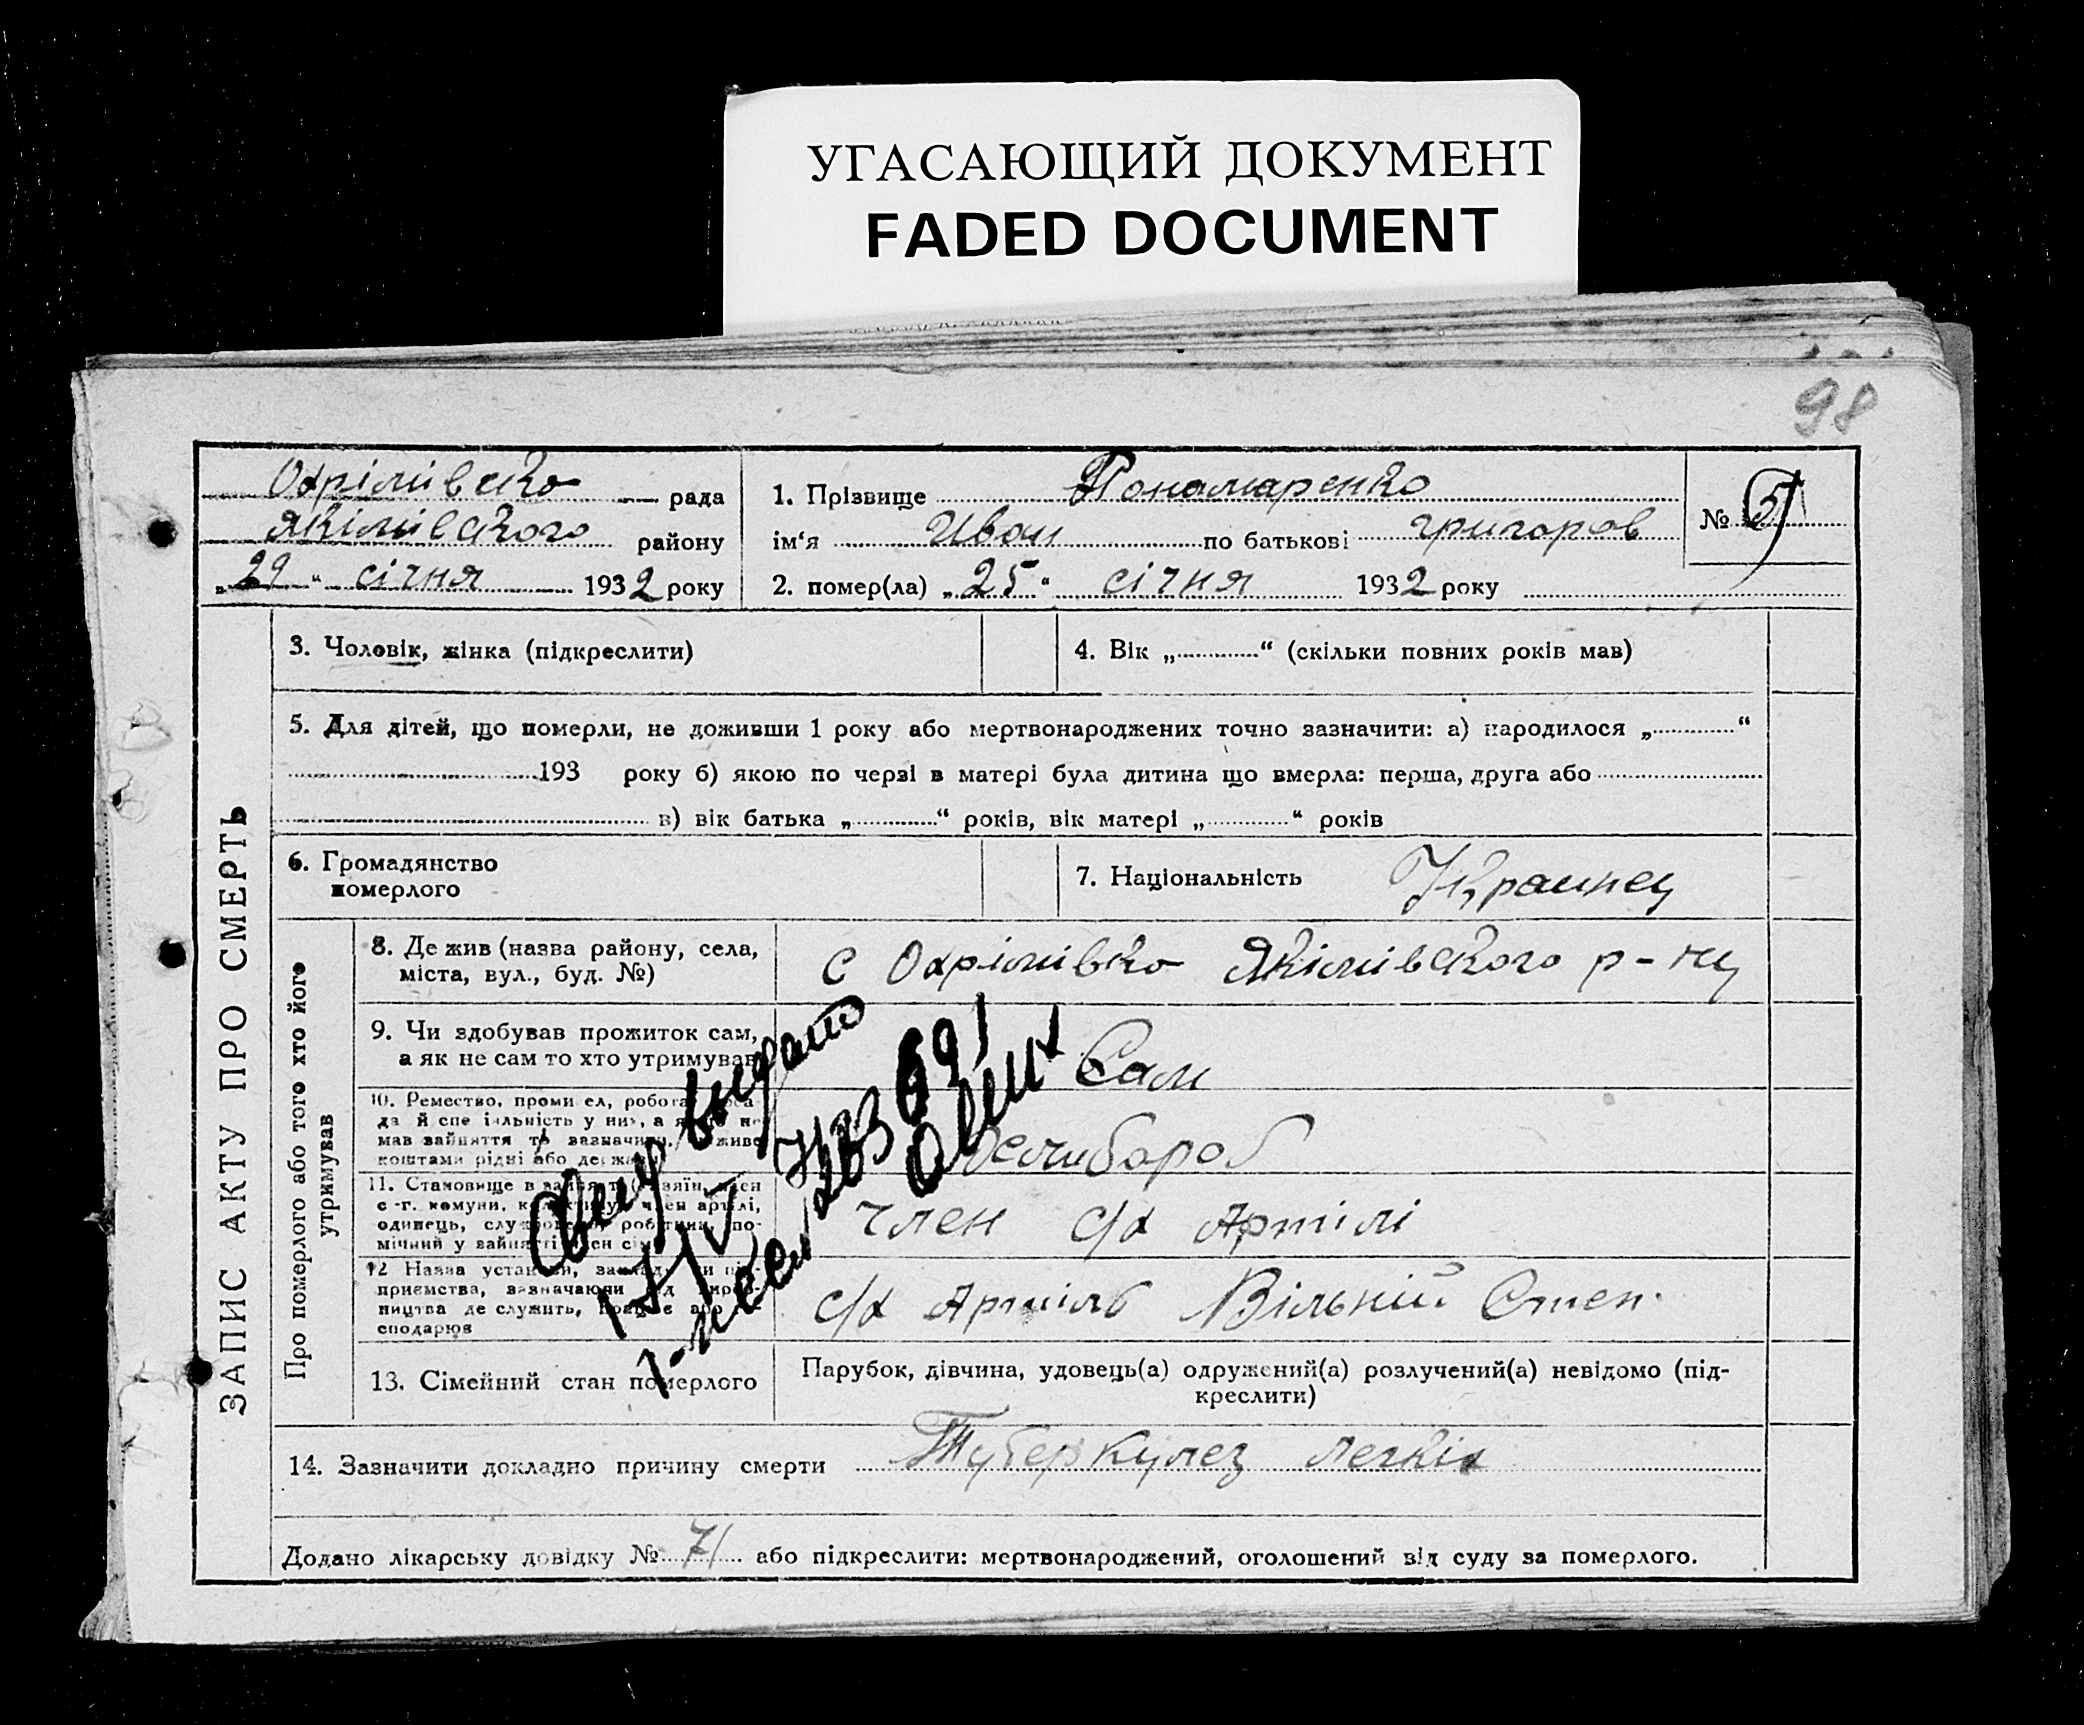 УГАСАЮЩИЙ ДОКУМЕНТ
FADED DOCUMENT
98
Охрімівско рада
Якімівского району
„29“ січня 1932 року
1. Прізвище Пономаренко
ім‘я Иван по батькові григоров
2. помер(ла) „25“ січня 1932 року
№ 5
ЗАПИС АКТУ ПРО СМЕРТЬ
3. Чоловік, жінка (підкреслити)
4. Вік „ “ (скільки повних років мав)
5. Для дітей, що померли, не доживши 1 року або мертвонароджених точно зазначити: а) народилося „ “
193 року б) якою по черзі в матері була дитина що вмерла: перша, друга або
в) вік батька „ “ років, вік матері „ “ років
6. Громадянство
померлого
7. Національність Украинец
Про померлого або того хто його
утримував
8. Де жив (назва району, села,
міста, вул., буд. №)
с Охрімівко Якімівского р-ну
9. Чи здобував прожиток сам,
а як не сам то хто утримував
Сам
10. Ремество, проми ел, робота
да й спе іальність у них, а
мав зайняття то зазначити, живе
коштами рідні або держави
Хлибороб
11. Становище в занятті
с-г. комуни, член артілі,
одинець, службовець, робітник, по-
мічний у занятті член сім
член с/х Артілі
12 Назва установи, закладу чи під-
приємства, зазначаючи вироб-
ництва де служить, працює або
сподарюв
с/х Артіль Вільний Степ.
Свид выдано
13. Сімейний стан померлого
Парубок, дівчина, удовець(а) одружений(а) розлучений(а) невідомо (під-
креслити)
14. Зазначити докладно причину смерти Туберкулез легкіх
Додано лікарську довідку № 7/ або підкреслити: мертвонароджений, оголошений від суду за померлого.